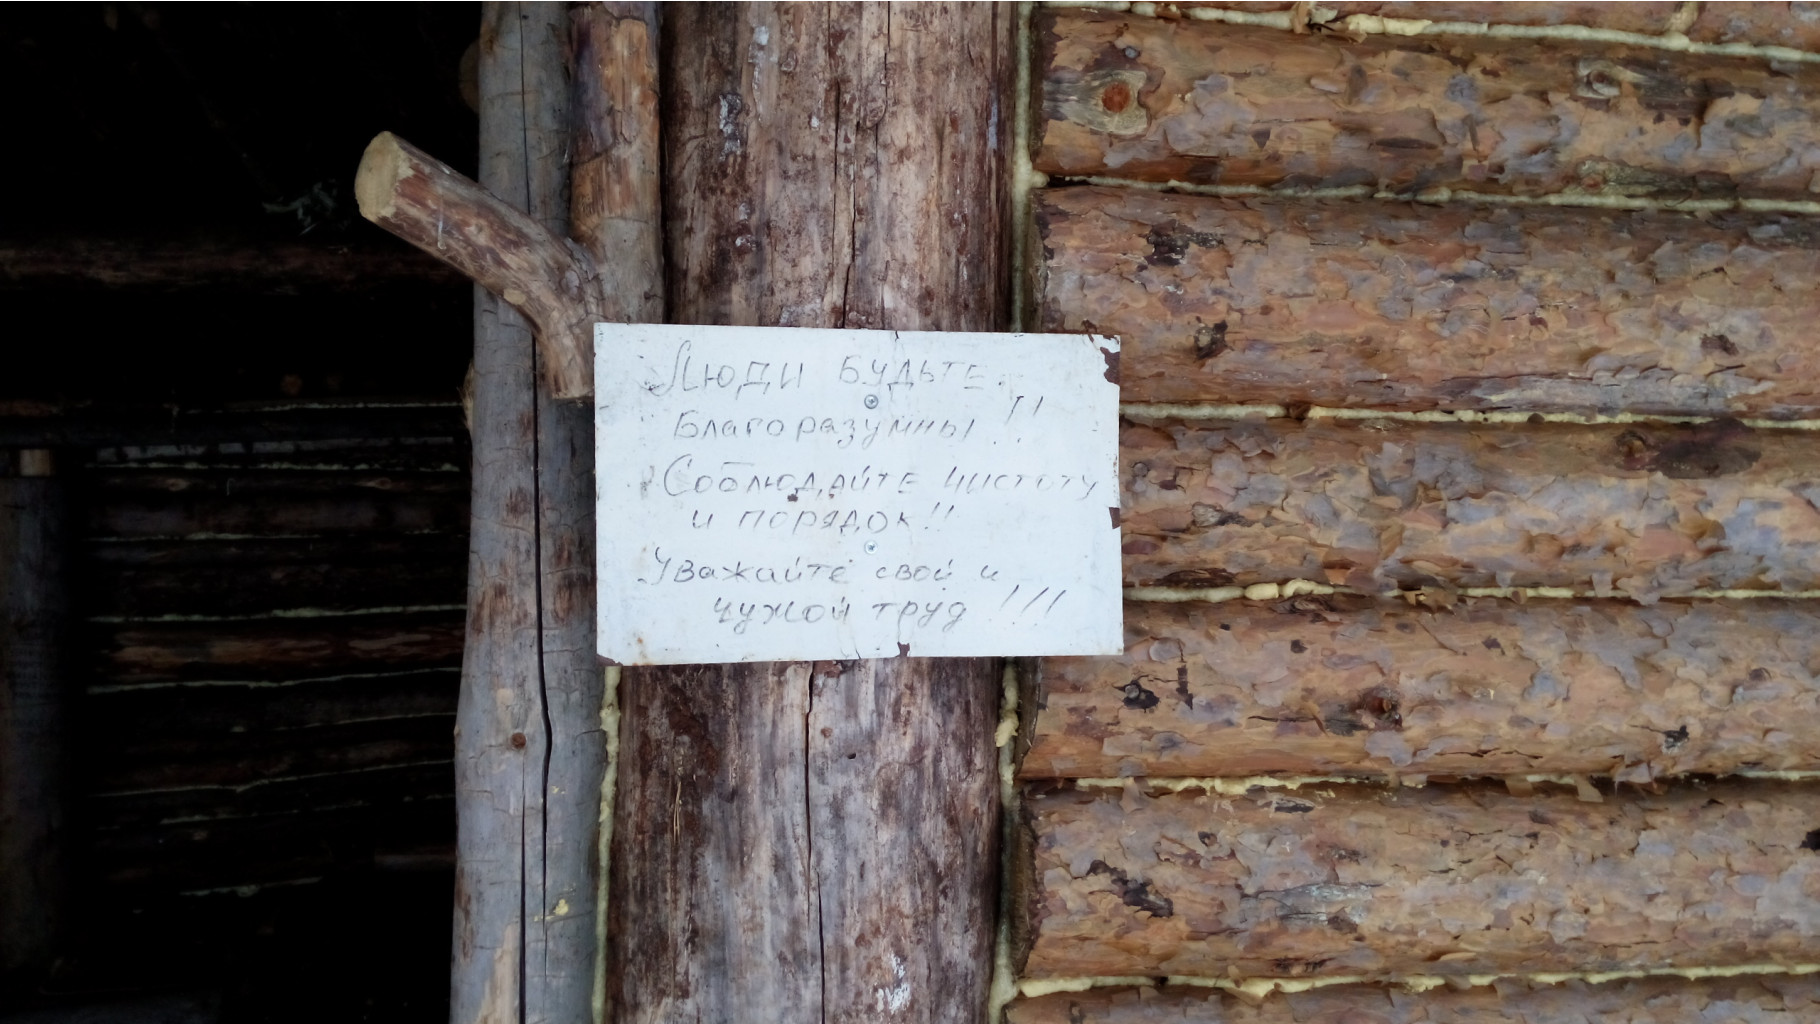 Люди будьте
Благоразумны!!
Соблюдайте чистоту
и порядок!!
Уважайте свой и
чужой труд!!!